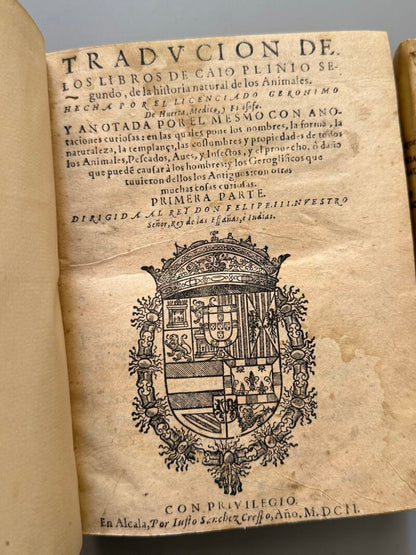 TRADVCION DE
LOS LIBROS DE CAIO PLINIO SE-
gundo, de la historia natural de los Animales.
HECHA POR EL LICENCIADO GERONIMO
De Huerta, Medico, y Filosofo.
Y ANOTADA POR EL MESMO CON ANO-
taciones curiosas: en las quales pone los nombres, la forma, la
naturaleza, la templança, las costumbres y propiedades de todos
los Animales, Pescados, Aues, y Insectos, y el prouecho, ò daño
que puedē causar à los hombres: y los Geroglificos que
tuuieron dellos los Antiguos: con otras
muchas cosas curiosas.
PRIMERA PARTE.
DIRIGIDA AL REY DON FELIPE. III. NVESTRO
Señor, Rey de las Españas, è Indias.
CON PRIVILEGIO.
En Alcala, Por Iusto Sanchez Crespo, Año. M.DCII.